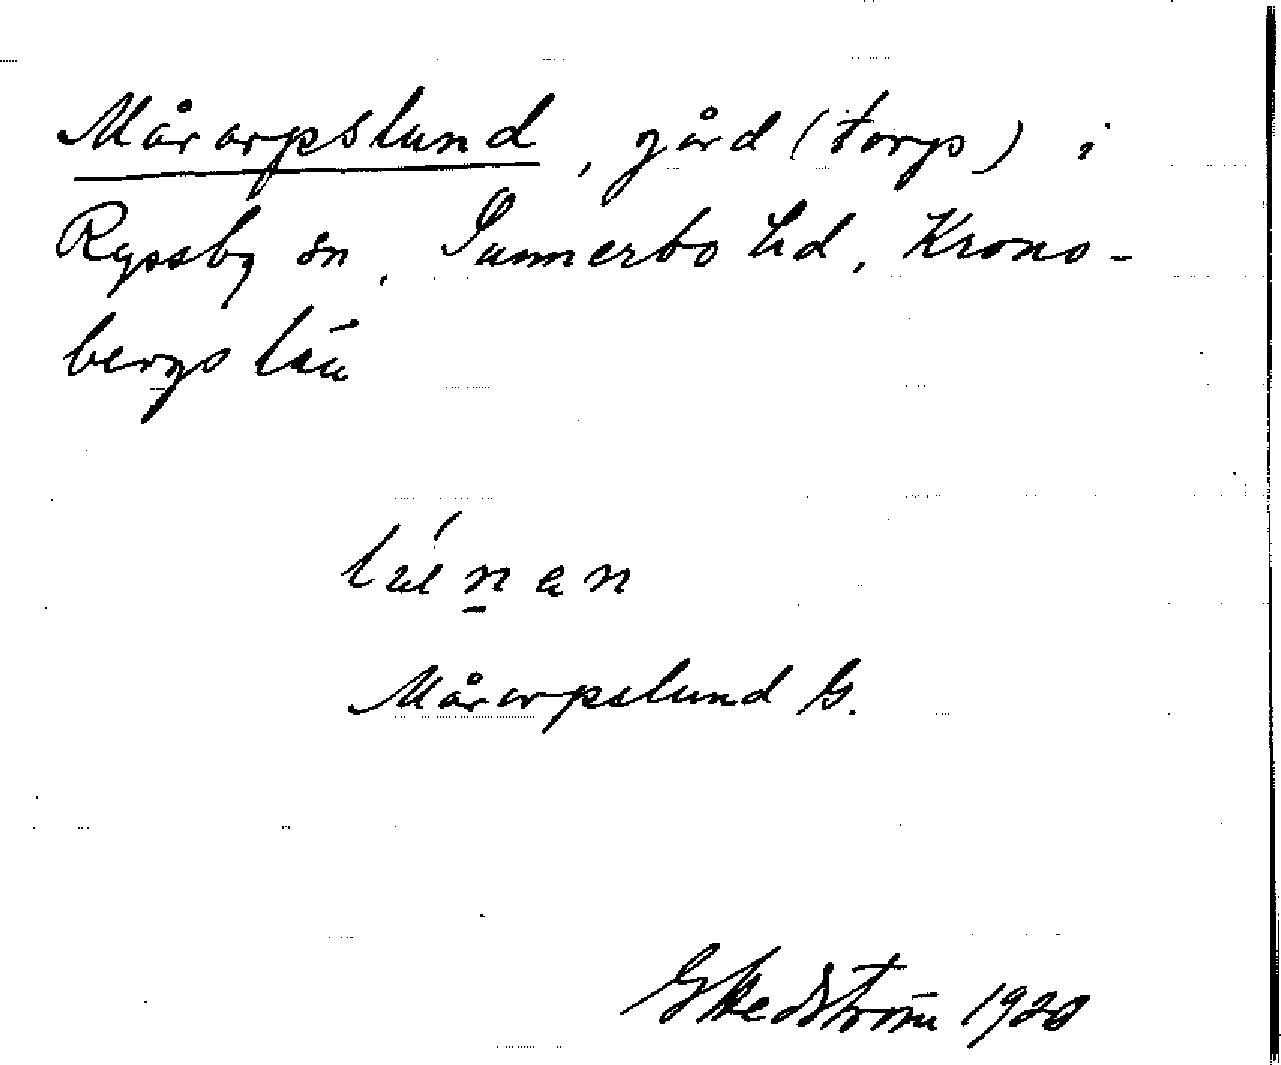 Mårarpslund, gård (torp) i
Ryssby sn, Sunnerbo hd, Krono-
bergs län
Mårarpslund G.
G Hedström 1920